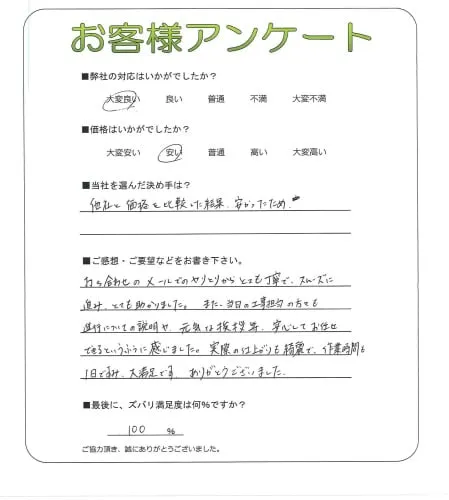 お客様アンケート
■弊社の対応はいかがでしたか?
大変良い 良い 普通 不満 大変不満
■価格はいかがでしたか?
大変安い 安い 普通 高い 大変高い
■当社を選んだ決め手は?
他社と価格を比較した結果、安かったため。
■ご感想・ご要望などをお書き下さい。
打ち合わせのメールでのやりとりからとても丁寧で、スムーズに
進み、とても助かりました。また、当日の工事担当の方も
進行についての説明や、元気な挨拶等、安心してお任せ
できるというふうに感じました。実際の仕上がりも綺麗で、作業時間も
1日で済み、大満足です。ありがとうございました。
■最後に、ズバリ満足度は何%ですか?
100 %
ご協力頂き、誠にありがとうございました。